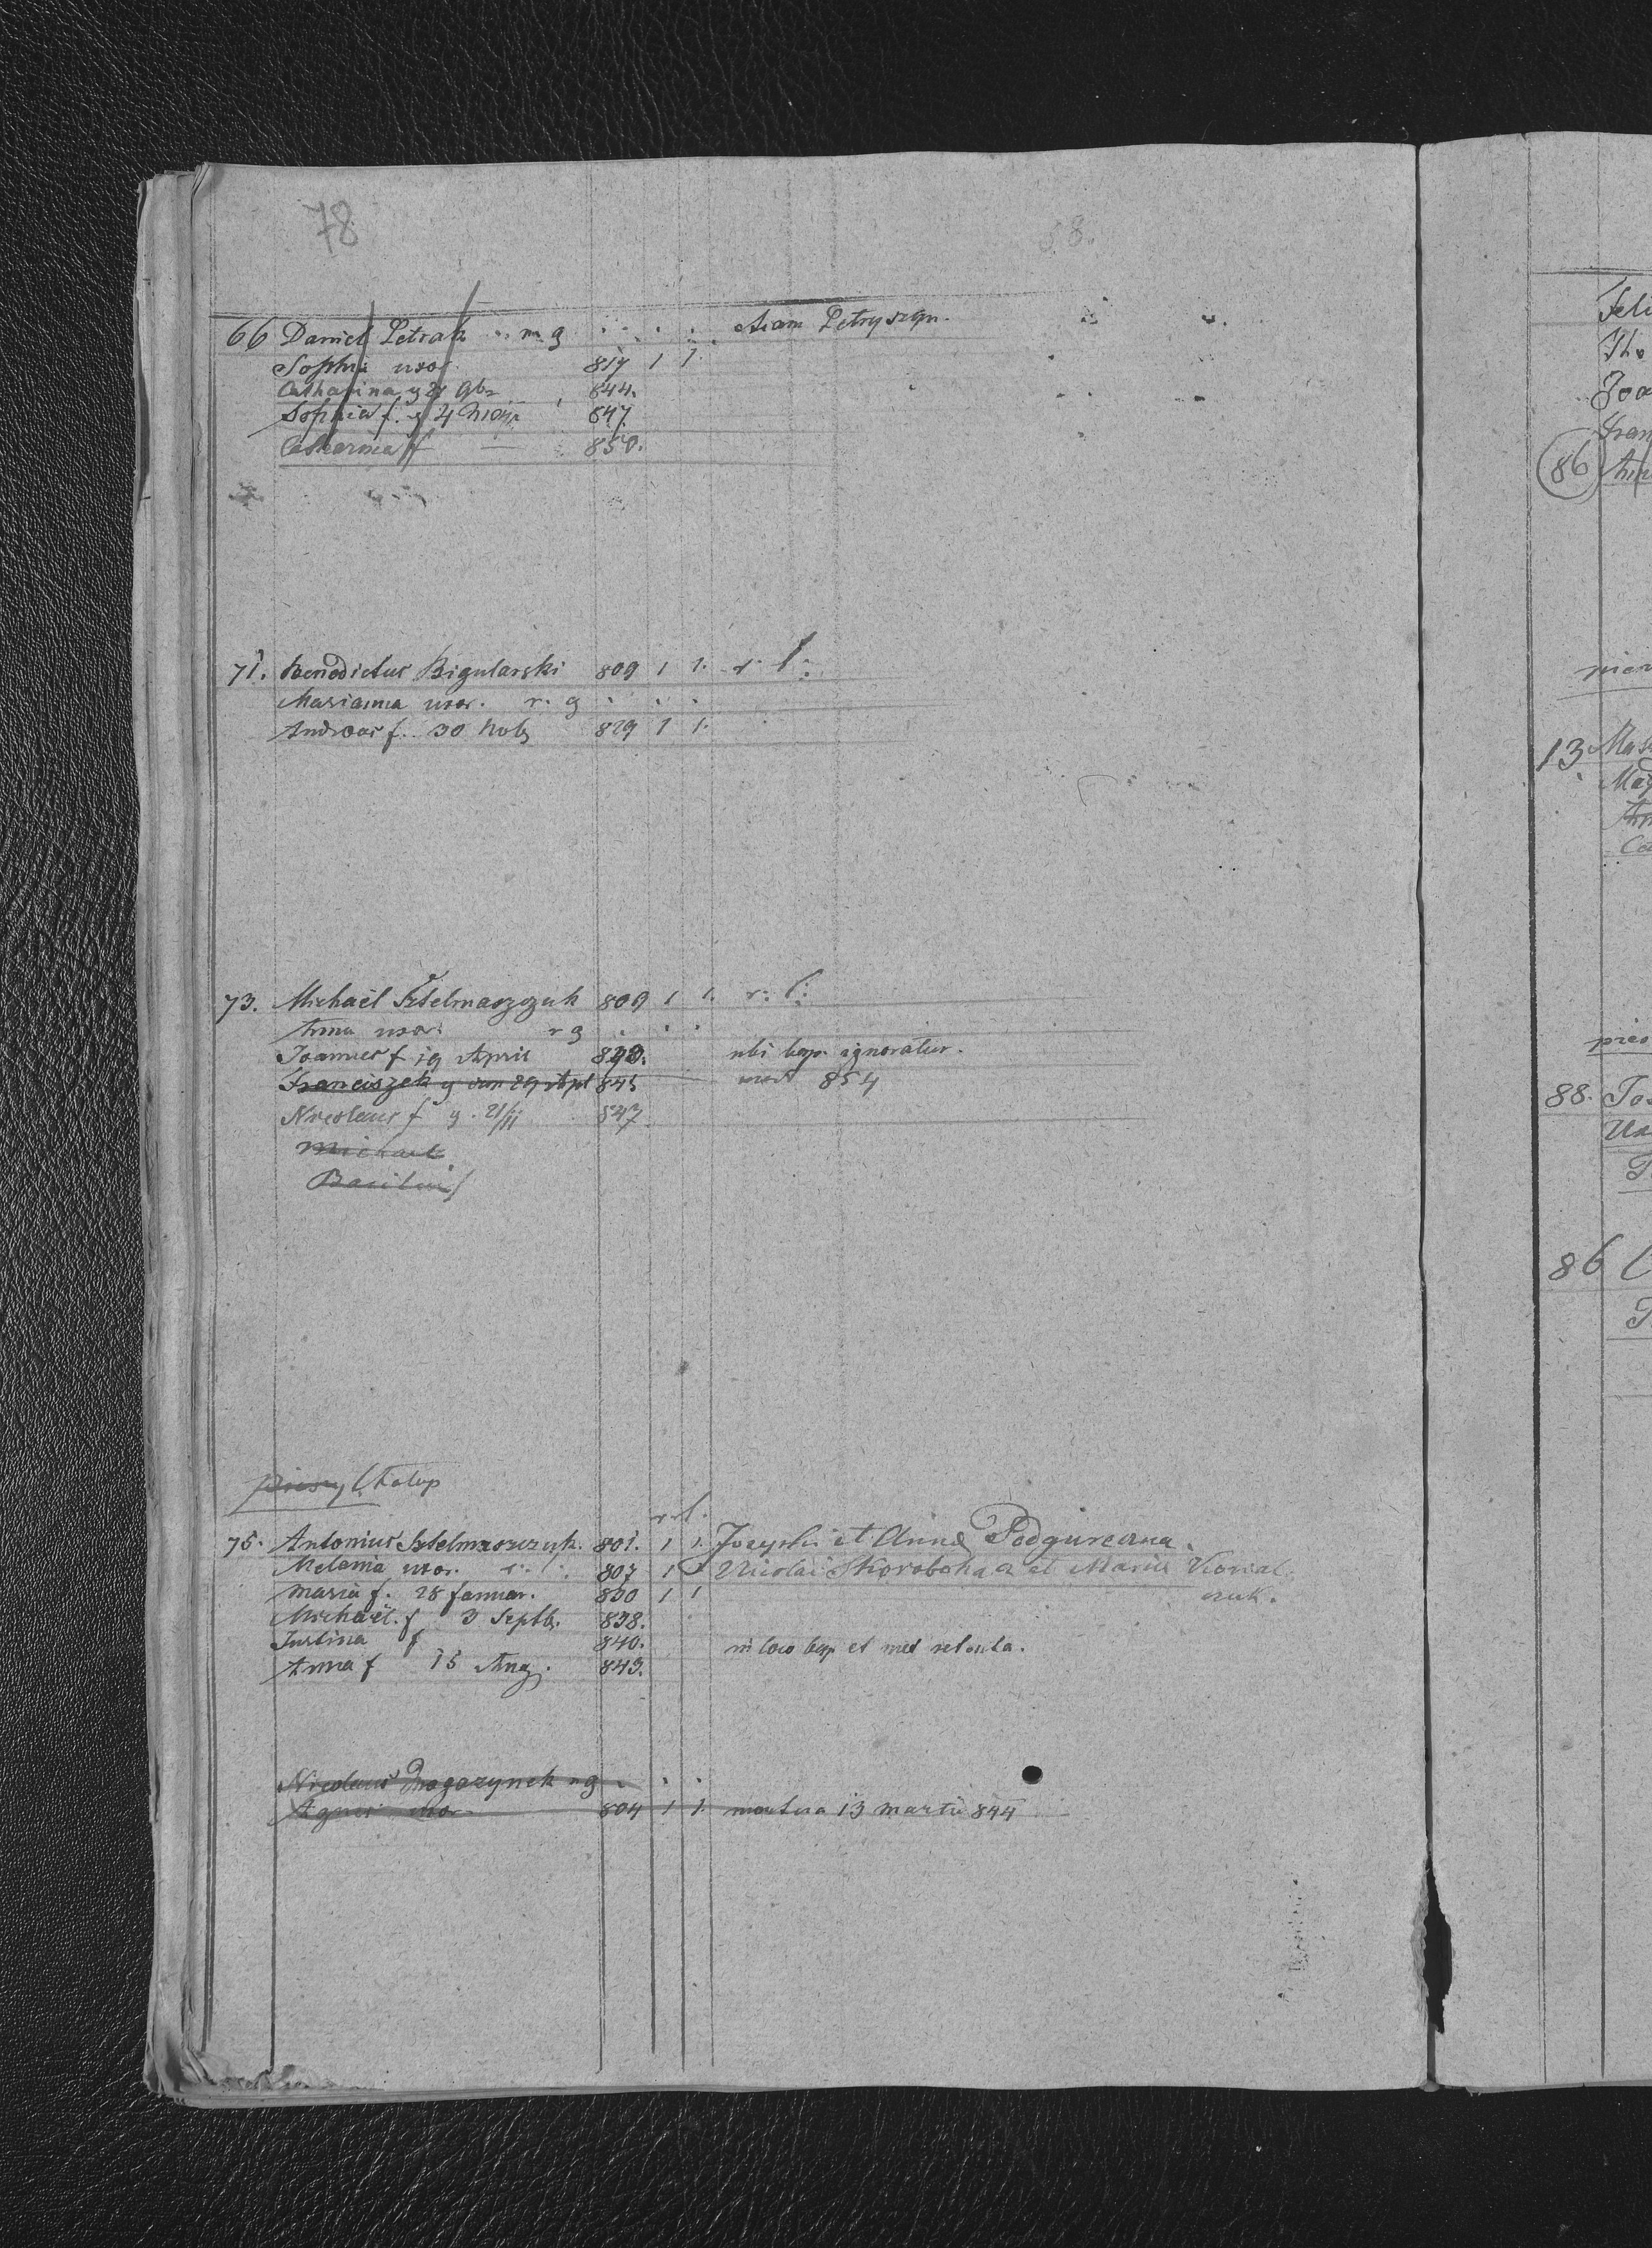 78
58.
66 Daniel Petrak r. g Petryszyn.
Sophia uxor 817 1 1.
Catharina g 844.
Sophia f. g 4 847
Catharina f — 850.
71. Benedictus Bigularski 809 1 1. r. l.
Marianna uxor. r. g
Andreas f. 30 Nob 829 1 1.
73. Michaël Sztelmaszczuk 809 1 1. r. l.
Anna uxor. r g
Joannes f 19 April ubi bap. ignoratur.
Franciszek g 845 854
Nicolaus f g. 21/11 847
Michael
Basilius f
pieszy Chałup
r. l.
75. Antonius Sztelmaszczuk. 801. 1 1. Josephi et Anna Podgureana.
Melania uxor. r. l. 807 1 1 Nicolai Skoroboha et Maria Kowal
Maria f. 28 Januar. 830 1 1 czuk.
Michaël. f 3 Septb. 838.
Justina f 840. in loco bap. et
Anna f 15 Aug. 843.
Nicolaus r g
Agnes uxor 804 1 1. mortua 13 Martii 844
Feli
Tho
Joa
Fran
86
13
88. Jos
86